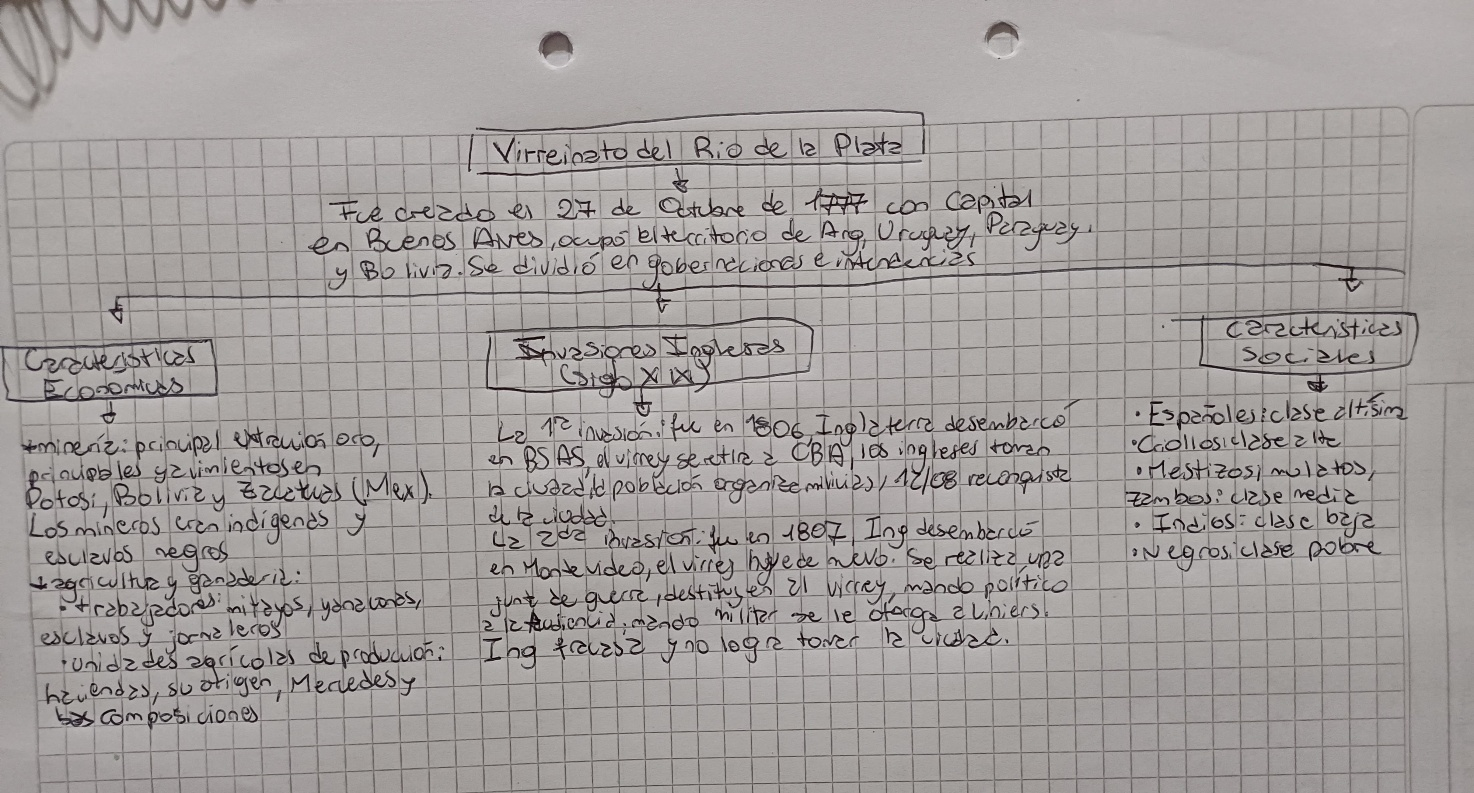 Virreinato del Rio de la Plata
Fue creado el 27 de Octubre de 1777 con Capital
en Buenos Aires, ocupó el territorio de Arg, Uruguay, Paraguay,
y Bolivia. Se dividió en gobernaciones e intendencias
Características
Economicas
minería: principal extracción oro,
principales yacimientos en
Potosi, Bolivia y Zacatecas (Mex).
Los mineros eran indígenas y
esclavos negros
agricultura y ganaderia:
· trabajadores: mitayos, yanaconas,
esclavos y jornaleros
· unidades agrícolas de producción:
haciendas, su origen, Mercedes y
composiciones
Invasiones Inglesas
(siglo XIX)
La 1ª invasión: fue en 1806, Inglaterra desembarcó
en BSAS, el virrey se retira a CBA, los ingleses toman
la ciudad, la población organiza milicias, 12/08 reconquista
de la ciudad.
La 2da invasión: fue en 1807, Ing desembarcó
en Montevideo, el virrey huye de nuevo. Se realiza una
junta de guerra, destituyen al virrey, mando político
a la Audiencia, mando militar se le otorga a Liniers.
Ing fracasa y no logra tomar la ciudad.
Características
Sociales
· Españoles: clase altísima
· Criollos: clase alta
· Mestizos, mulatos,
zambos: clase media
· Indios: clase baja
· Negros: clase pobre